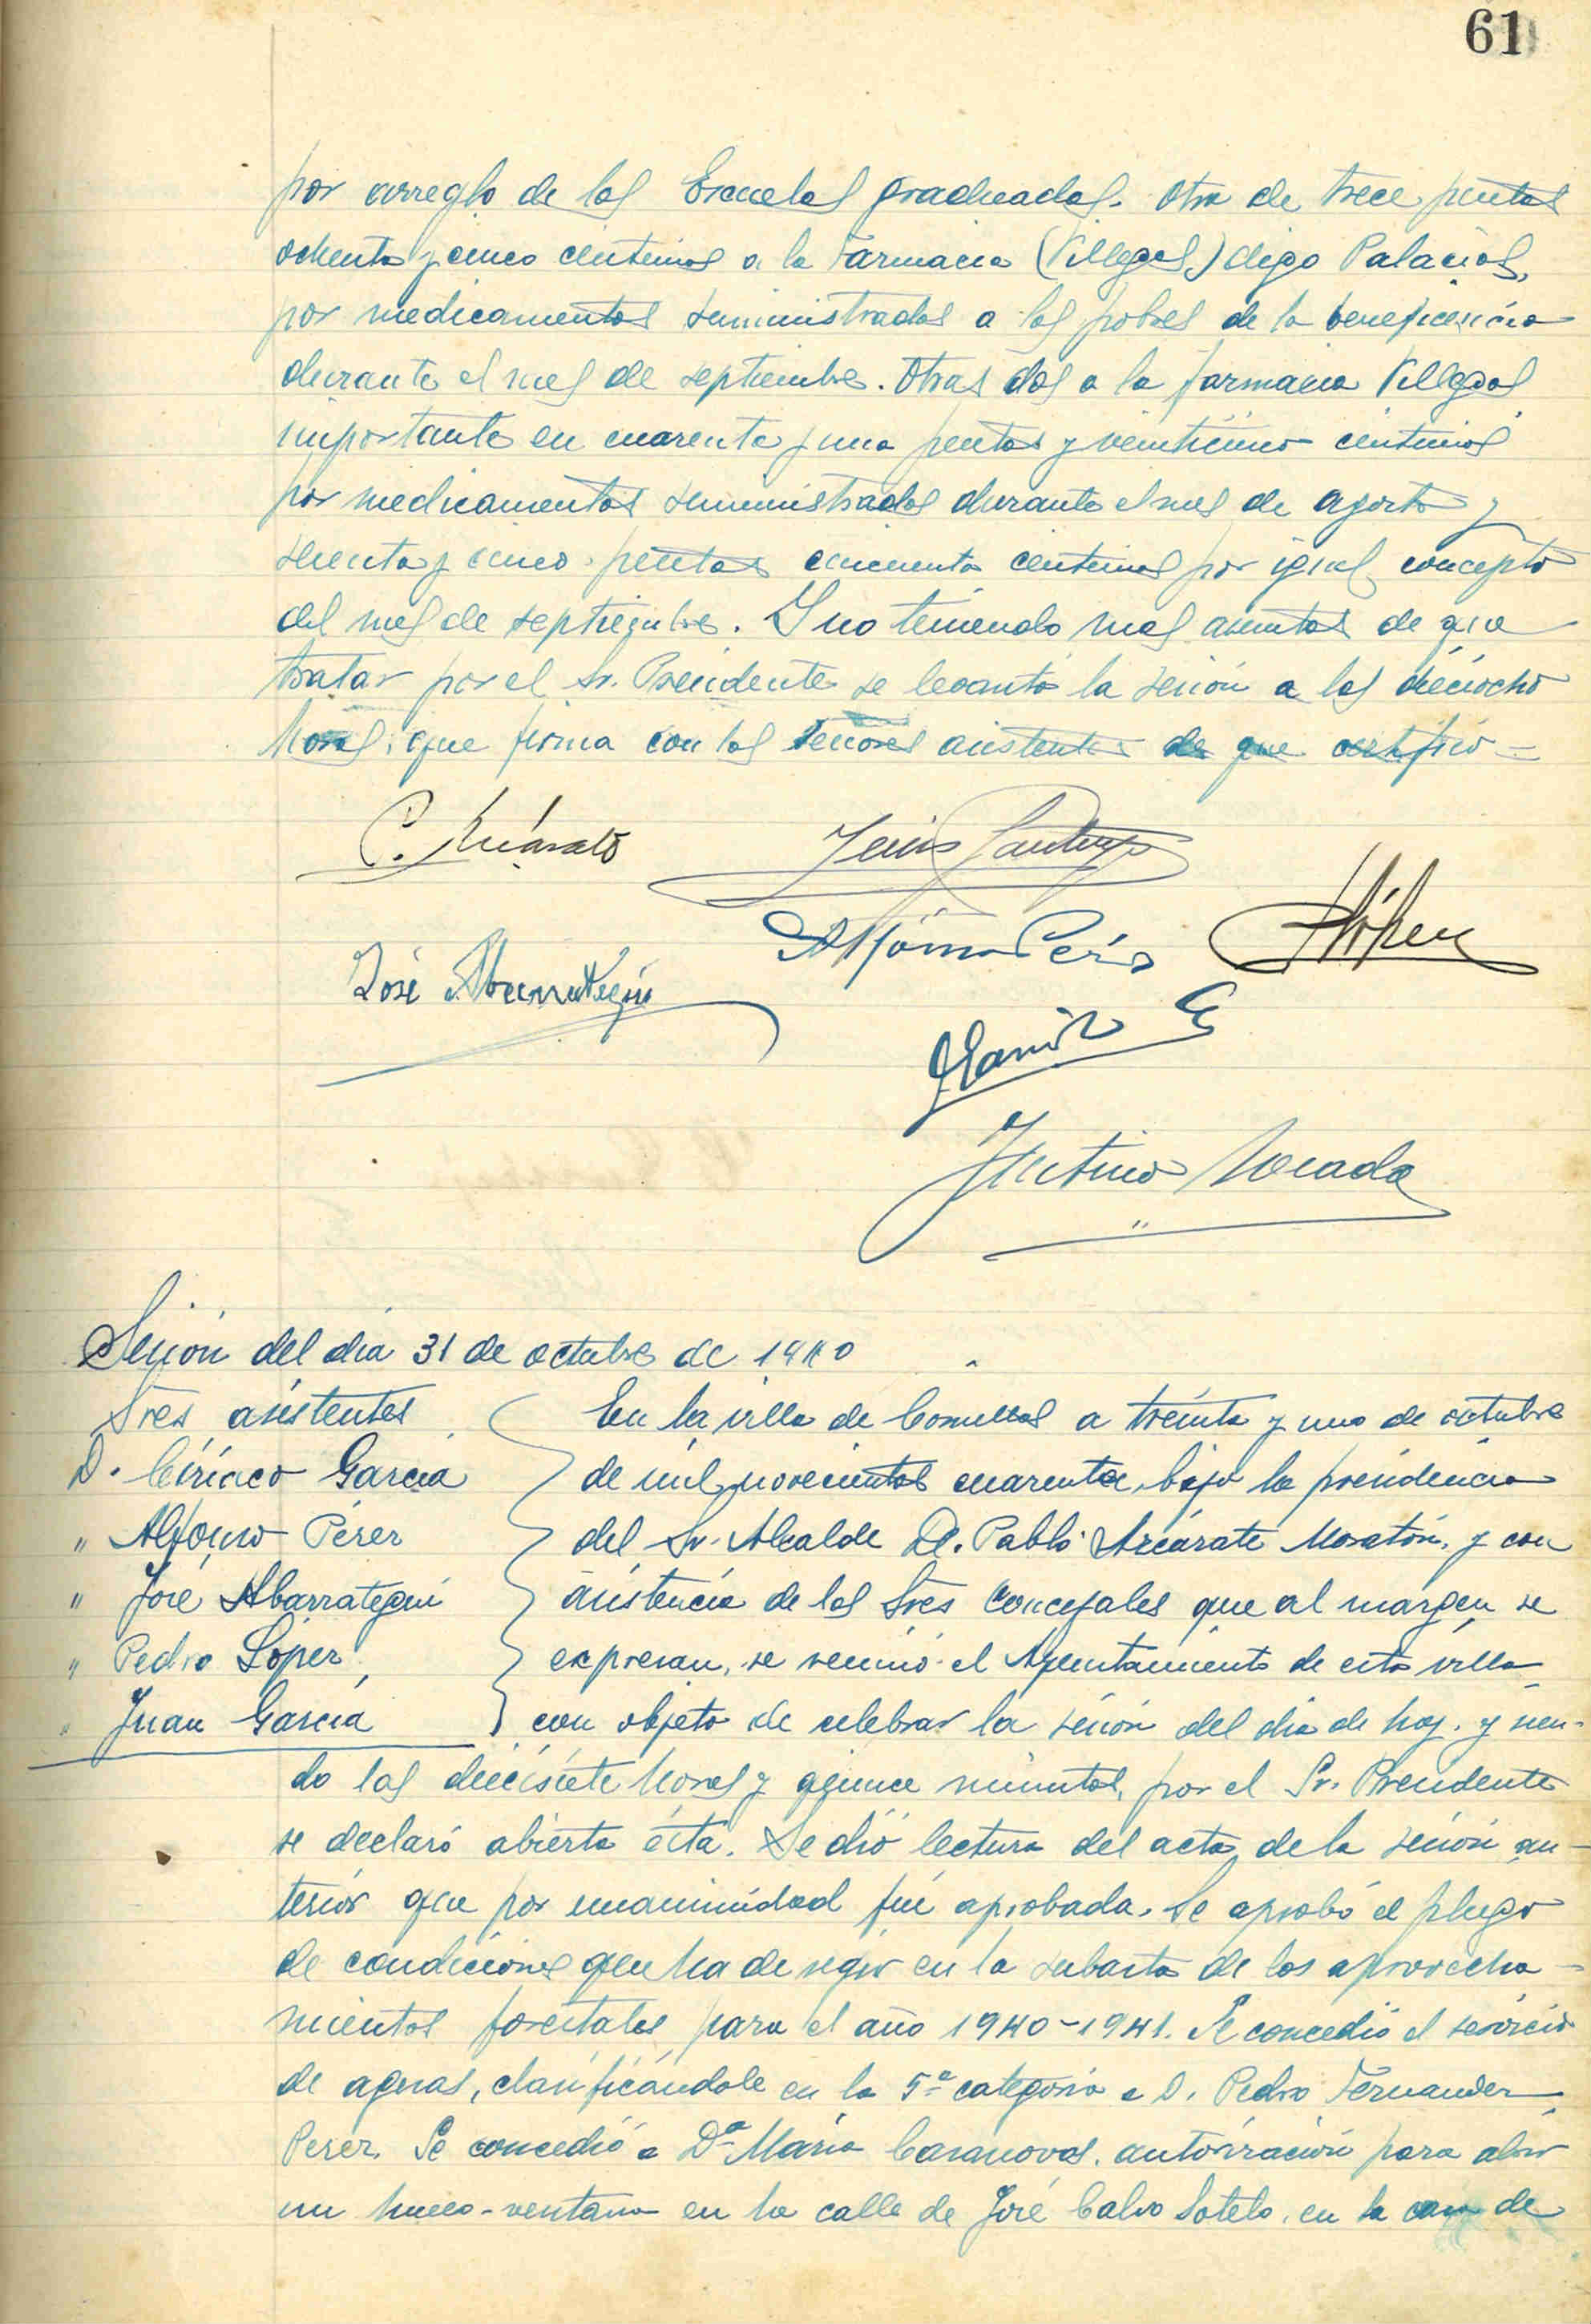 61
por arreglo de las Escuelas graduadas. Otra de trece pesetas
ochenta y cinco céntimos a la Farmacia (Villegas) digo Palacios,
por medicamentos suministrados a los pobres de la beneficencia
durante el mes de septiembre. Otras dos a la farmacia Villegas
importante en cuarenta y una pesetas y veinticinco céntimos
por medicamentos suministrados durante el mes de agosto y
sesenta y cinco pesetas cincuenta céntimos por igual concepto
del mes de septiembre. Y no teniendo mas asuntos de que
tratar por el Sr. Presidente se levantó la sesión a las dieciocho
horas, que firma con los señores asistentes de que certifico =
José Abarrategui Alfonso Pérez
Sesión del día 31 de octubre de 1940
Sres asistentes
D. Ciriaco García
" Alfonso Pérez
" José Abarrategui
" Pedro López
" Juan García
En la villa de Comillas a treinta y uno de octubre
de mil novecientos cuarenta, bajo la presidencia
del Sr. Alcalde D. Pablo Azcárate Moratón, y con
asistencia de los Sres Concejales que al margen se
expresan, se reunió el Ayuntamiento de esta villa
con objeto de celebrar la sesión del día de hoy, y sien-
do las diecisiete horas y quince minutos, por el Sr. Presidente
se declaró abierta ésta. Se dió lectura del acta de la sesión an-
terior que por unanimidad fué aprobada. Se aprobó el pliego
de condiciones que ha de regir en la subasta de los aprovecha-
mientos forestales para el año 1940-1941. Se concedió el servicio
de aguas, clasificándole en la 5ª categoria a D. Pedro Fernandez
Perez. Se concedió a Dª María Casanovas, autorización para abrir
un hueco-ventana en la calle de José Calvo Sotelo, en la casa de